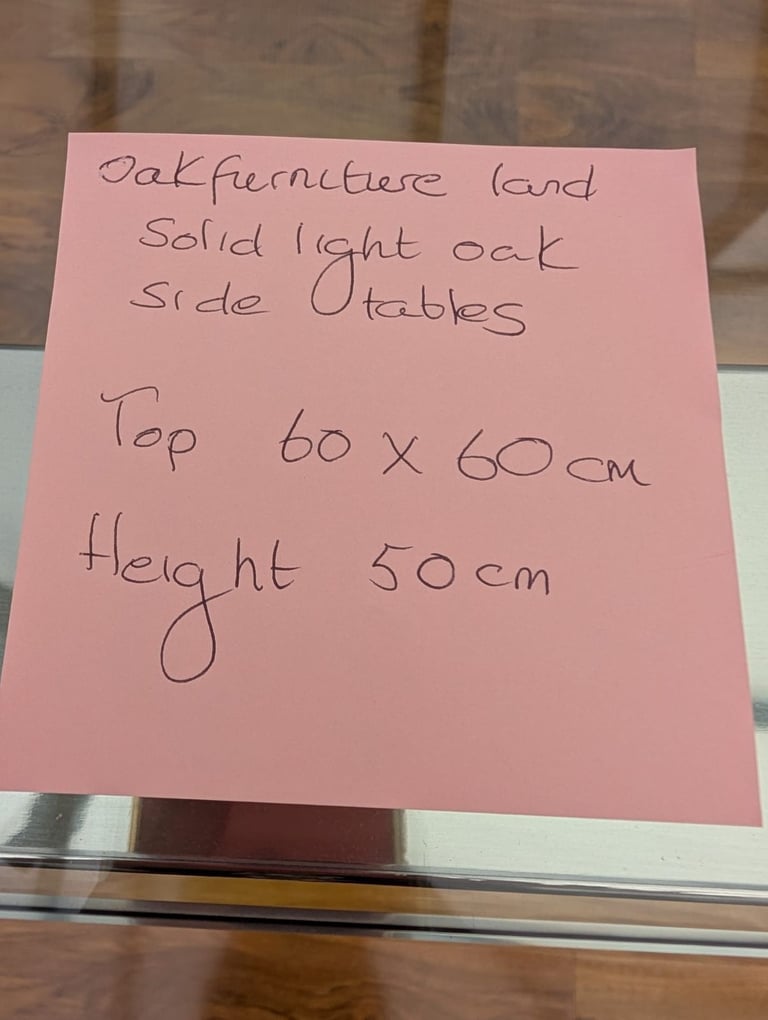 Oakfurniture land
Solid light oak
side tables
Top 60 x 60 cm
Height 50 cm